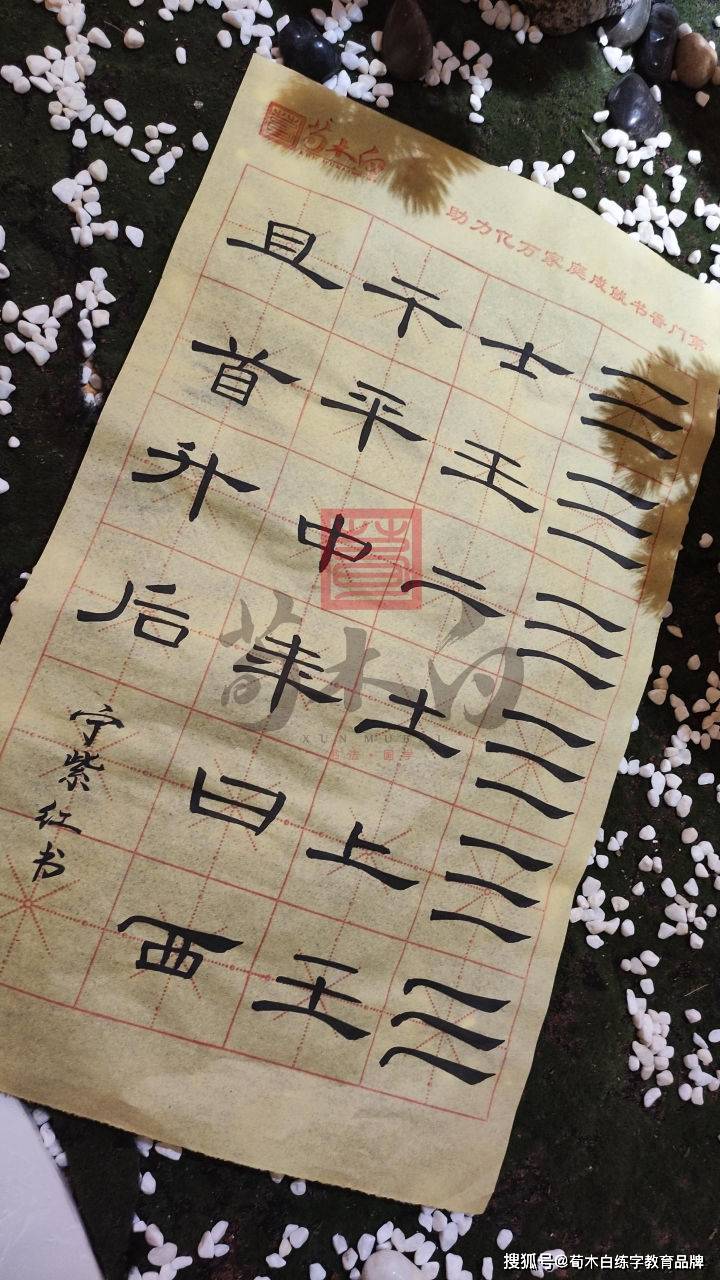 荀木白
助力亿万家庭成就书香门第
三三三三三三
士王二土上王
干平中曰西
且首升后
宁紫红书
荀木白
XUN MU BAI
书法·国学
搜狐号@荀木白练字教育品牌